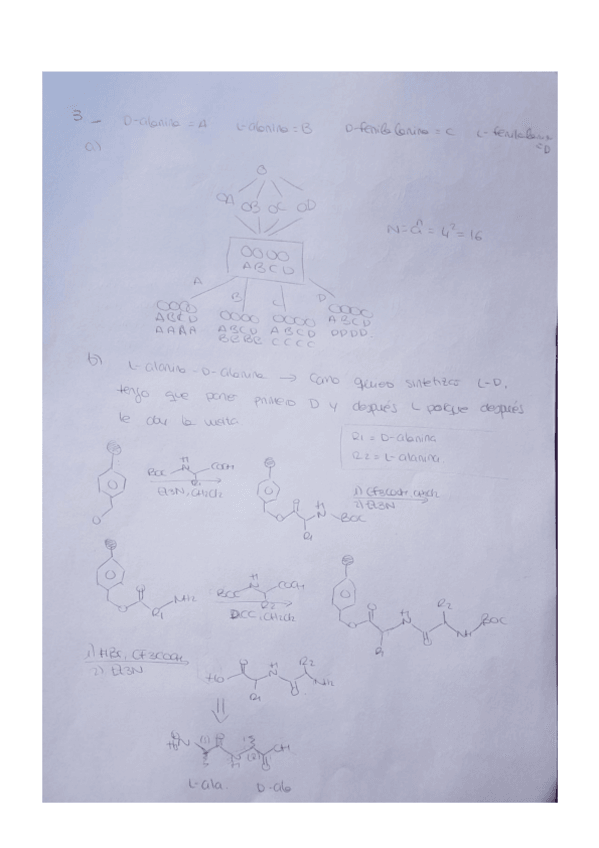 3 - D-alanina = A L-alanina = B D-fenilalanina = C L-fenilalanina = D
a)
O
OA OB OC OD
N = Cⁿ = 4² = 16
OOOO
ABCD
A B C D
OOOO OOOO OOOO OOOO
ABCD ABCD ABCD ABCD
AAAA BBBB CCCC DDDD
b) L-alanina - D-alanina → Como quiero sintetizar L-D,
tengo que poner primero D y después L porque después
le doy la vuelta
R1 = D-alanina
R2 = L-alanina
BOC N H COOH R1
Et3N, CH2Cl2
O R1 H N BOC
1) CF3COOH, CH2Cl2
2) Et3N
O O R1 NH2
BOC N H COOH R2
DCC, CH2Cl2
O O R1 H N O R2 NH BOC
1) HBr, CF3COOH
2) Et3N
HO O R1 H N O R2 NH2
H2N (1) O N H (2) O OH
L-ala D-ala